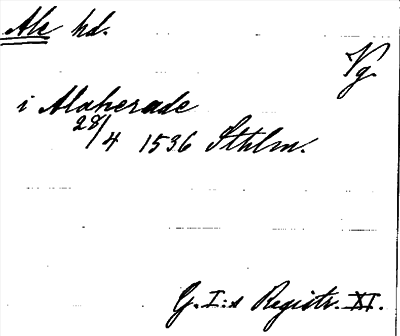 Ale hd.
Vg.
i Aloherade
28/4 1536 Sthlm.
G. I:s Registr. XI.